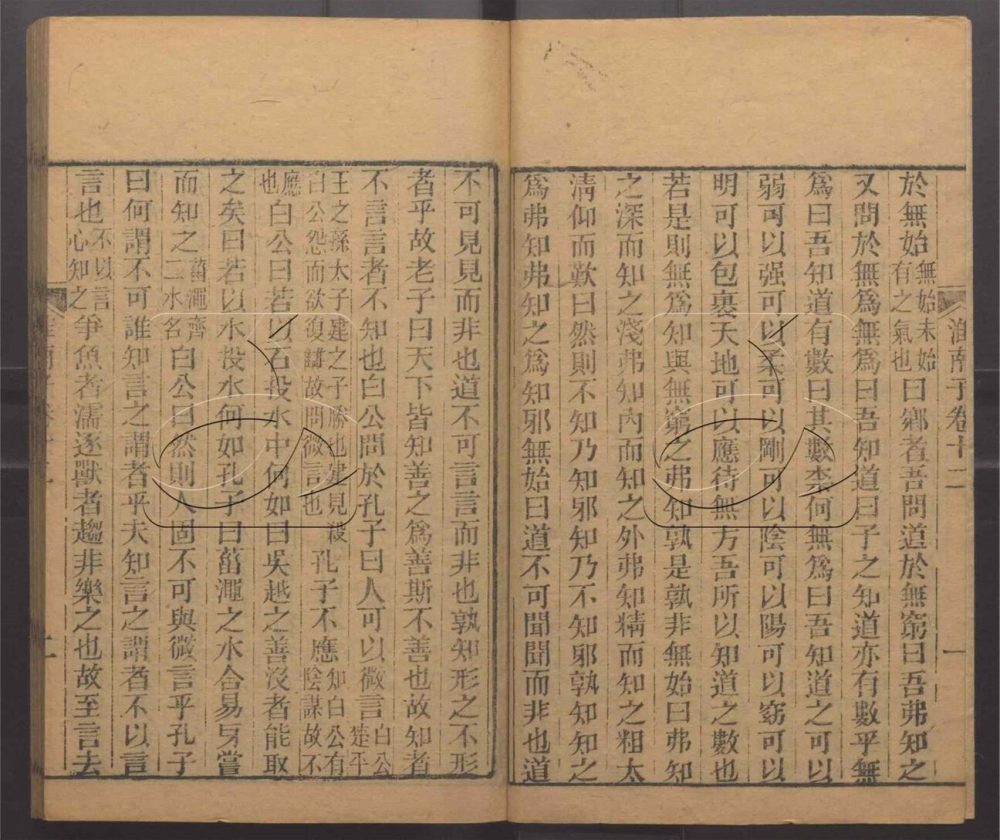 淮南子卷十二 一
於無始無始未始有之氣也曰鄉者吾問道於無窮曰吾弗知之
又問於無爲無爲曰吾知道曰子之知道亦有數乎無
爲曰吾知道有數曰其數柰何無爲曰吾知道之可以
弱可以强可以柔可以剛可以陰可以陽可以窈可以
明可以包裹天地可以應待無方吾所以知道之數也
若是則無爲知與無窮之弗知孰是孰非無始曰弗知
之深而知之淺弗知內而知之外弗知精而知之粗太
淸仰而歎曰然則不知乃知邪知乃不知邪孰知知之
爲弗知弗知之爲知邪無始曰道不可聞聞而非也道
不可見見而非也道不可言言而非也孰知形之不形
者乎故老子曰天下皆知善之爲善斯不善也故知者
不言言者不知也白公問於孔子曰人可以微言白公楚平
王之孫太子建之子勝也建見殺白公怨而欲復讎故問微言也孔子不應知白公有陰謀故不
應也白公曰若以石投水中何如曰吳越之善沒者能取
之矣曰若以水投水何如孔子曰菑澠之水合易牙嘗
而知之菑澠齊二水名白公曰然則人固不可與微言乎孔子
曰何謂不可誰知言之謂者乎夫知言之謂者不以言
言也不以言心知之爭魚者濡逐獸者趨非樂之也故至言去
二